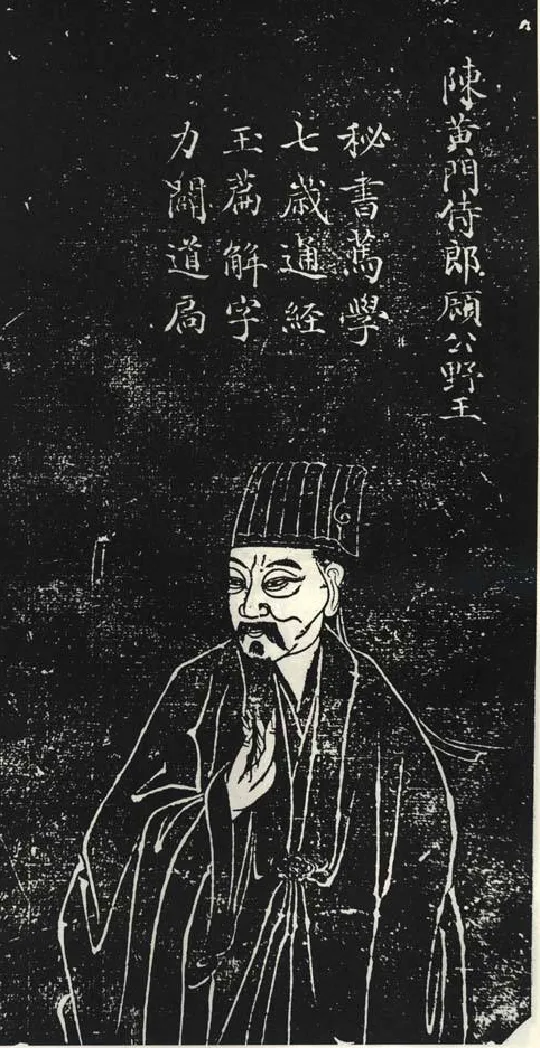 陳黄門侍郎顧公野王
秘書篤學
七歲通經
玉篇解字
力闢道扃